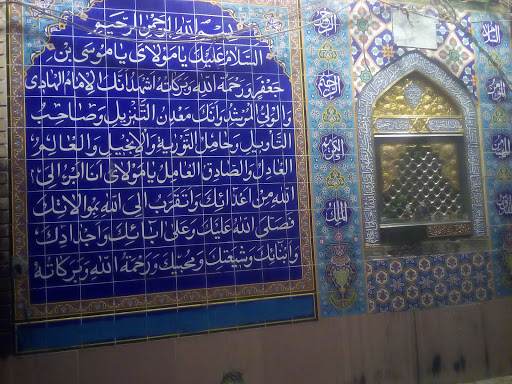 بسم الله الرحمن الرحیم
السلام علیک یا مولای یا موسی بن
جعفر و رحمة الله و برکاته اشهد انک الامام الهادی
والولی المرشد و انک معدن التنزیل و صاحب
التأویل و حامل التوریة و الانجیل و العالم
العادل و الصادق العامل یا مولای انا ابرء الی
الله من اعدائک و اتقرب الی الله بموالاتک
فصلی الله علیک و علی ابائک و اجدادک
و ابنائک و شیعتک و محبیک و رحمة الله و برکاته
الکریم
الملک